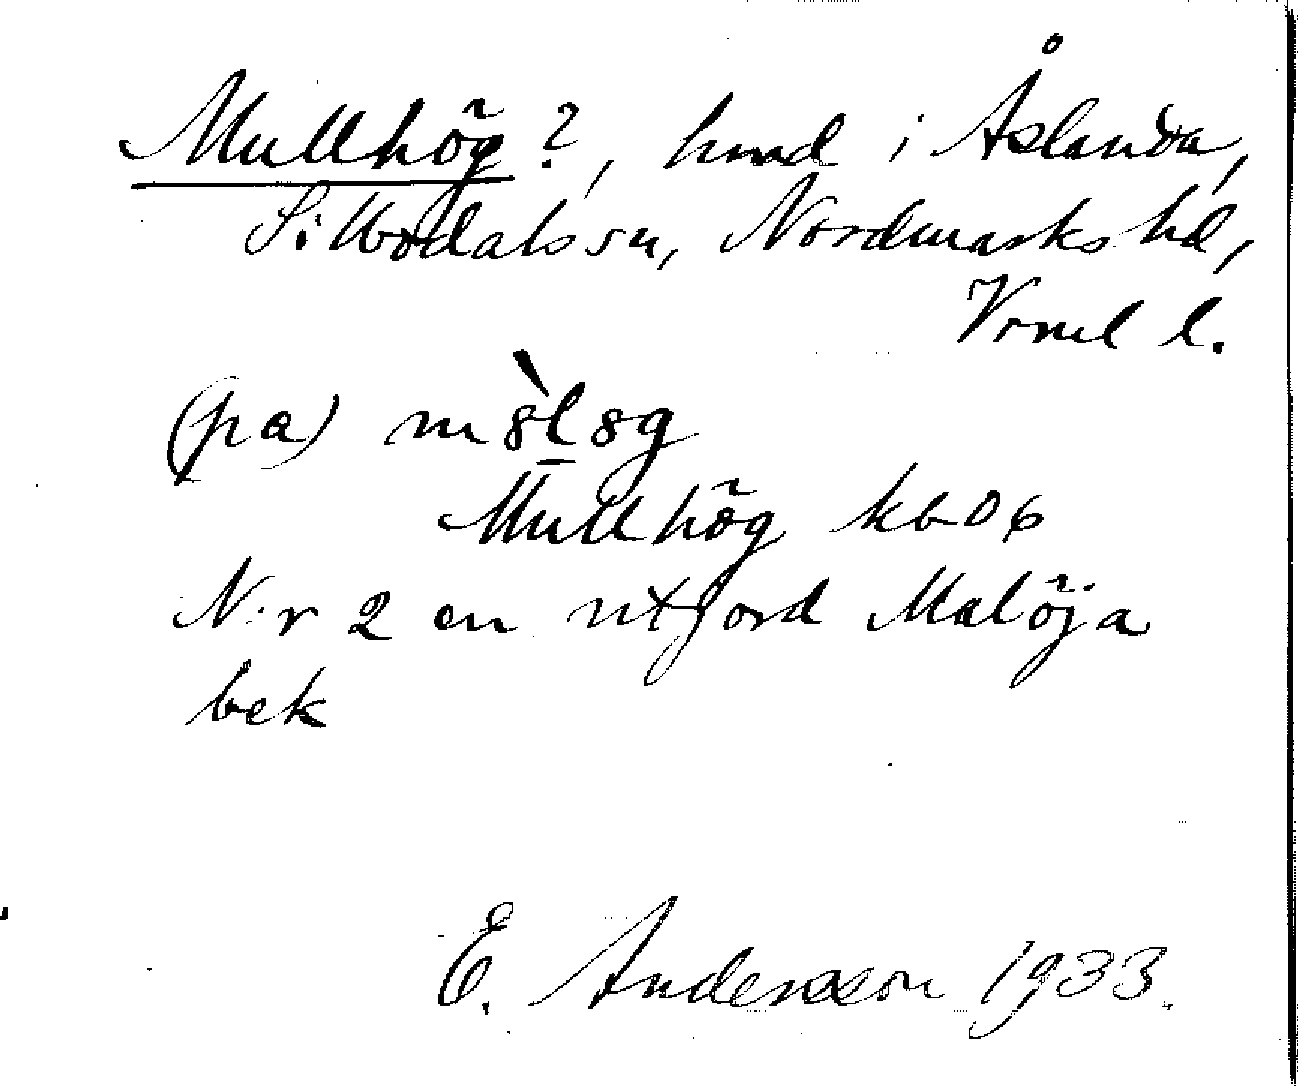 Mullhög?, hmd i Åslanda,
Sillbodals sn, Nordmarks hd,
Vrml l.
(pa) mo̊ḷog
Mullhög kb 06
N:r 2 en utjord Malöja
bek
E. Andersson 1933.